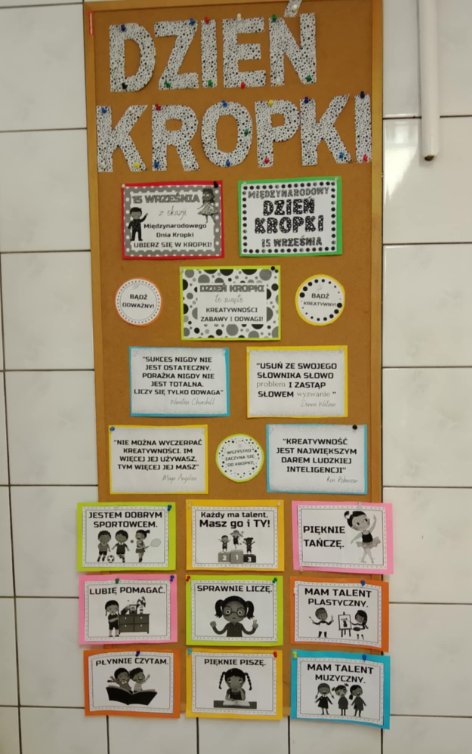 DZIEŃ
KROPKI
15 WRZEŚNIA
z okazji
Międzynarodowego
Dnia Kropki
UBIERZ SIĘ W KROPKI!
MIĘDZYNARODOWY
DZIEŃ
KROPKI
15 WRZEŚNIA
BĄDŹ
ODWAŻNY!
DZIEŃ KROPKI
to święto
KREATYWNOŚCI
ZABAWY I ODWAGI!
BĄDŹ
KREATYWNY!
"SUKCES NIGDY NIE
JEST OSTATECZNY.
PORAŻKA NIGDY NIE
JEST TOTALNA.
LICZY SIĘ TYLKO ODWAGA"
Winston Churchill
"USUŃ ZE SWOJEGO
SŁOWNIKA SŁOWO
problem I ZASTĄP
SŁOWEM wyzwanie"
Donna Watson
"NIE MOŻNA WYCZERPAĆ
KREATYWNOŚCI. IM
WIĘCEJ JEJ UŻYWASZ,
TYM WIĘCEJ JEJ MASZ"
Maya Angelou
WSZYSTKO
ZACZYNA SIĘ
OD KROPKI.
"KREATYWNOŚĆ
JEST NAJWIĘKSZYM
DAREM LUDZKIEJ
INTELIGENCJI"
Ken Robinson
JESTEM DOBRYM
SPORTOWCEM.
Każdy ma talent.
Masz go i TY!
PIĘKNIE
TAŃCZĘ.
LUBIĘ POMAGAĆ.
SPRAWNIE LICZĘ.
MAM TALENT
PLASTYCZNY.
PŁYNNIE CZYTAM.
PIĘKNIE PISZĘ.
MAM TALENT
MUZYCZNY.